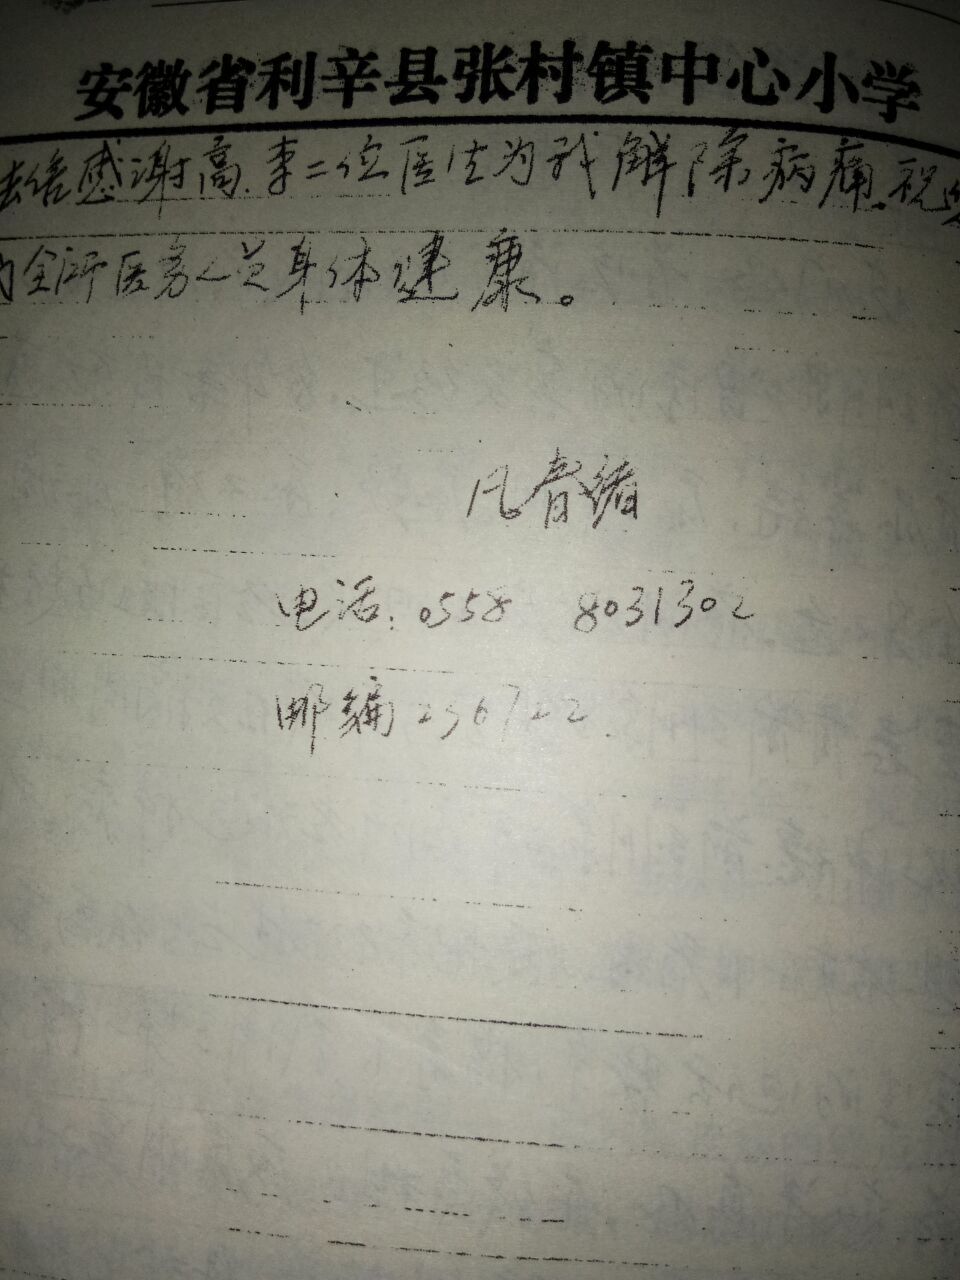 安徽省利辛县张村镇中心小学
感谢高.李二位医生为我解除病痛.祝
全所医务人员身体健康。
凡春
电话:0558 8031302
邮编236722